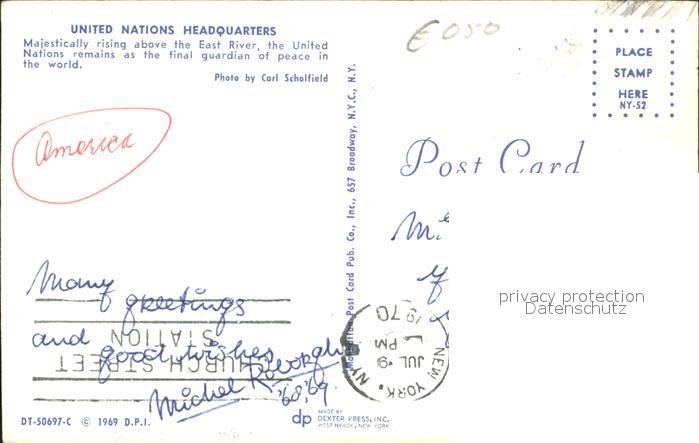 UNITED NATIONS HEADQUARTERS
Majestically rising above the East River, the United
Nations remains as the final guardian of peace in
the world.
Photo by Carl Scholfield
E050
PLACE
STAMP
HERE
NY-52
America
Post Card
Post Card Pub. Co., Inc., 657 Broadway, N.Y.C., N.Y.
privacy protection
Datenschutz
Many
greetings
and
good wishes
Michel
'68,'69
CHURCH STREET
STATION
NEW YORK, NY
JUL 9
PM
1970
DT-50697-C © 1969 D.P.I.
dp
MADE BY
DEXTER PRESS, INC.
WEST NYACK, NEW YORK